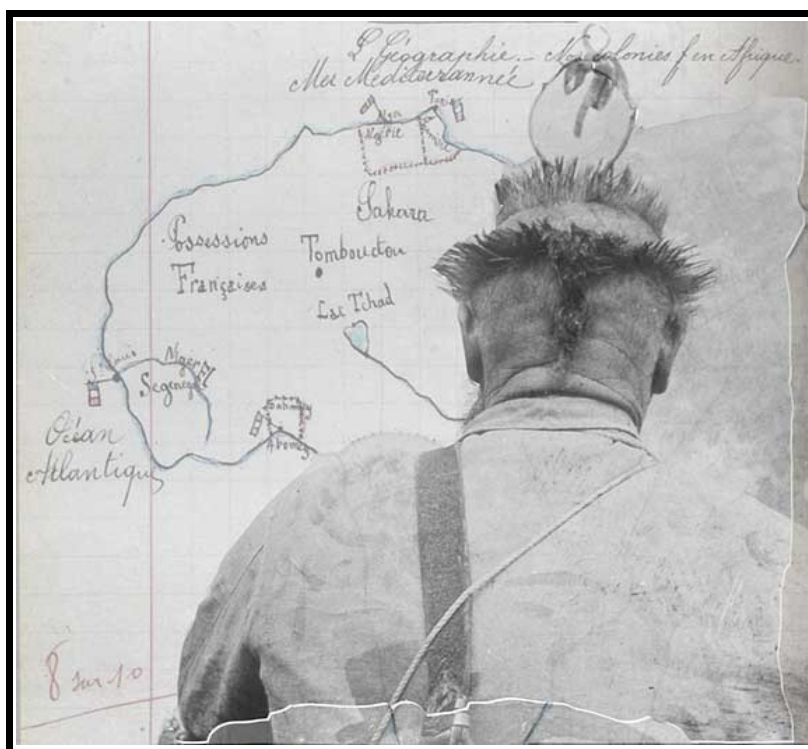 Géographie. _ Nos colonies f. en Afrique.
Mer Méditerrannée
Alger
Algérie
Sahara
Possessions
Françaises
Tombouctou
Lac Tchad
Niger
Abomey
Océan
Atlantique
8 sur 10